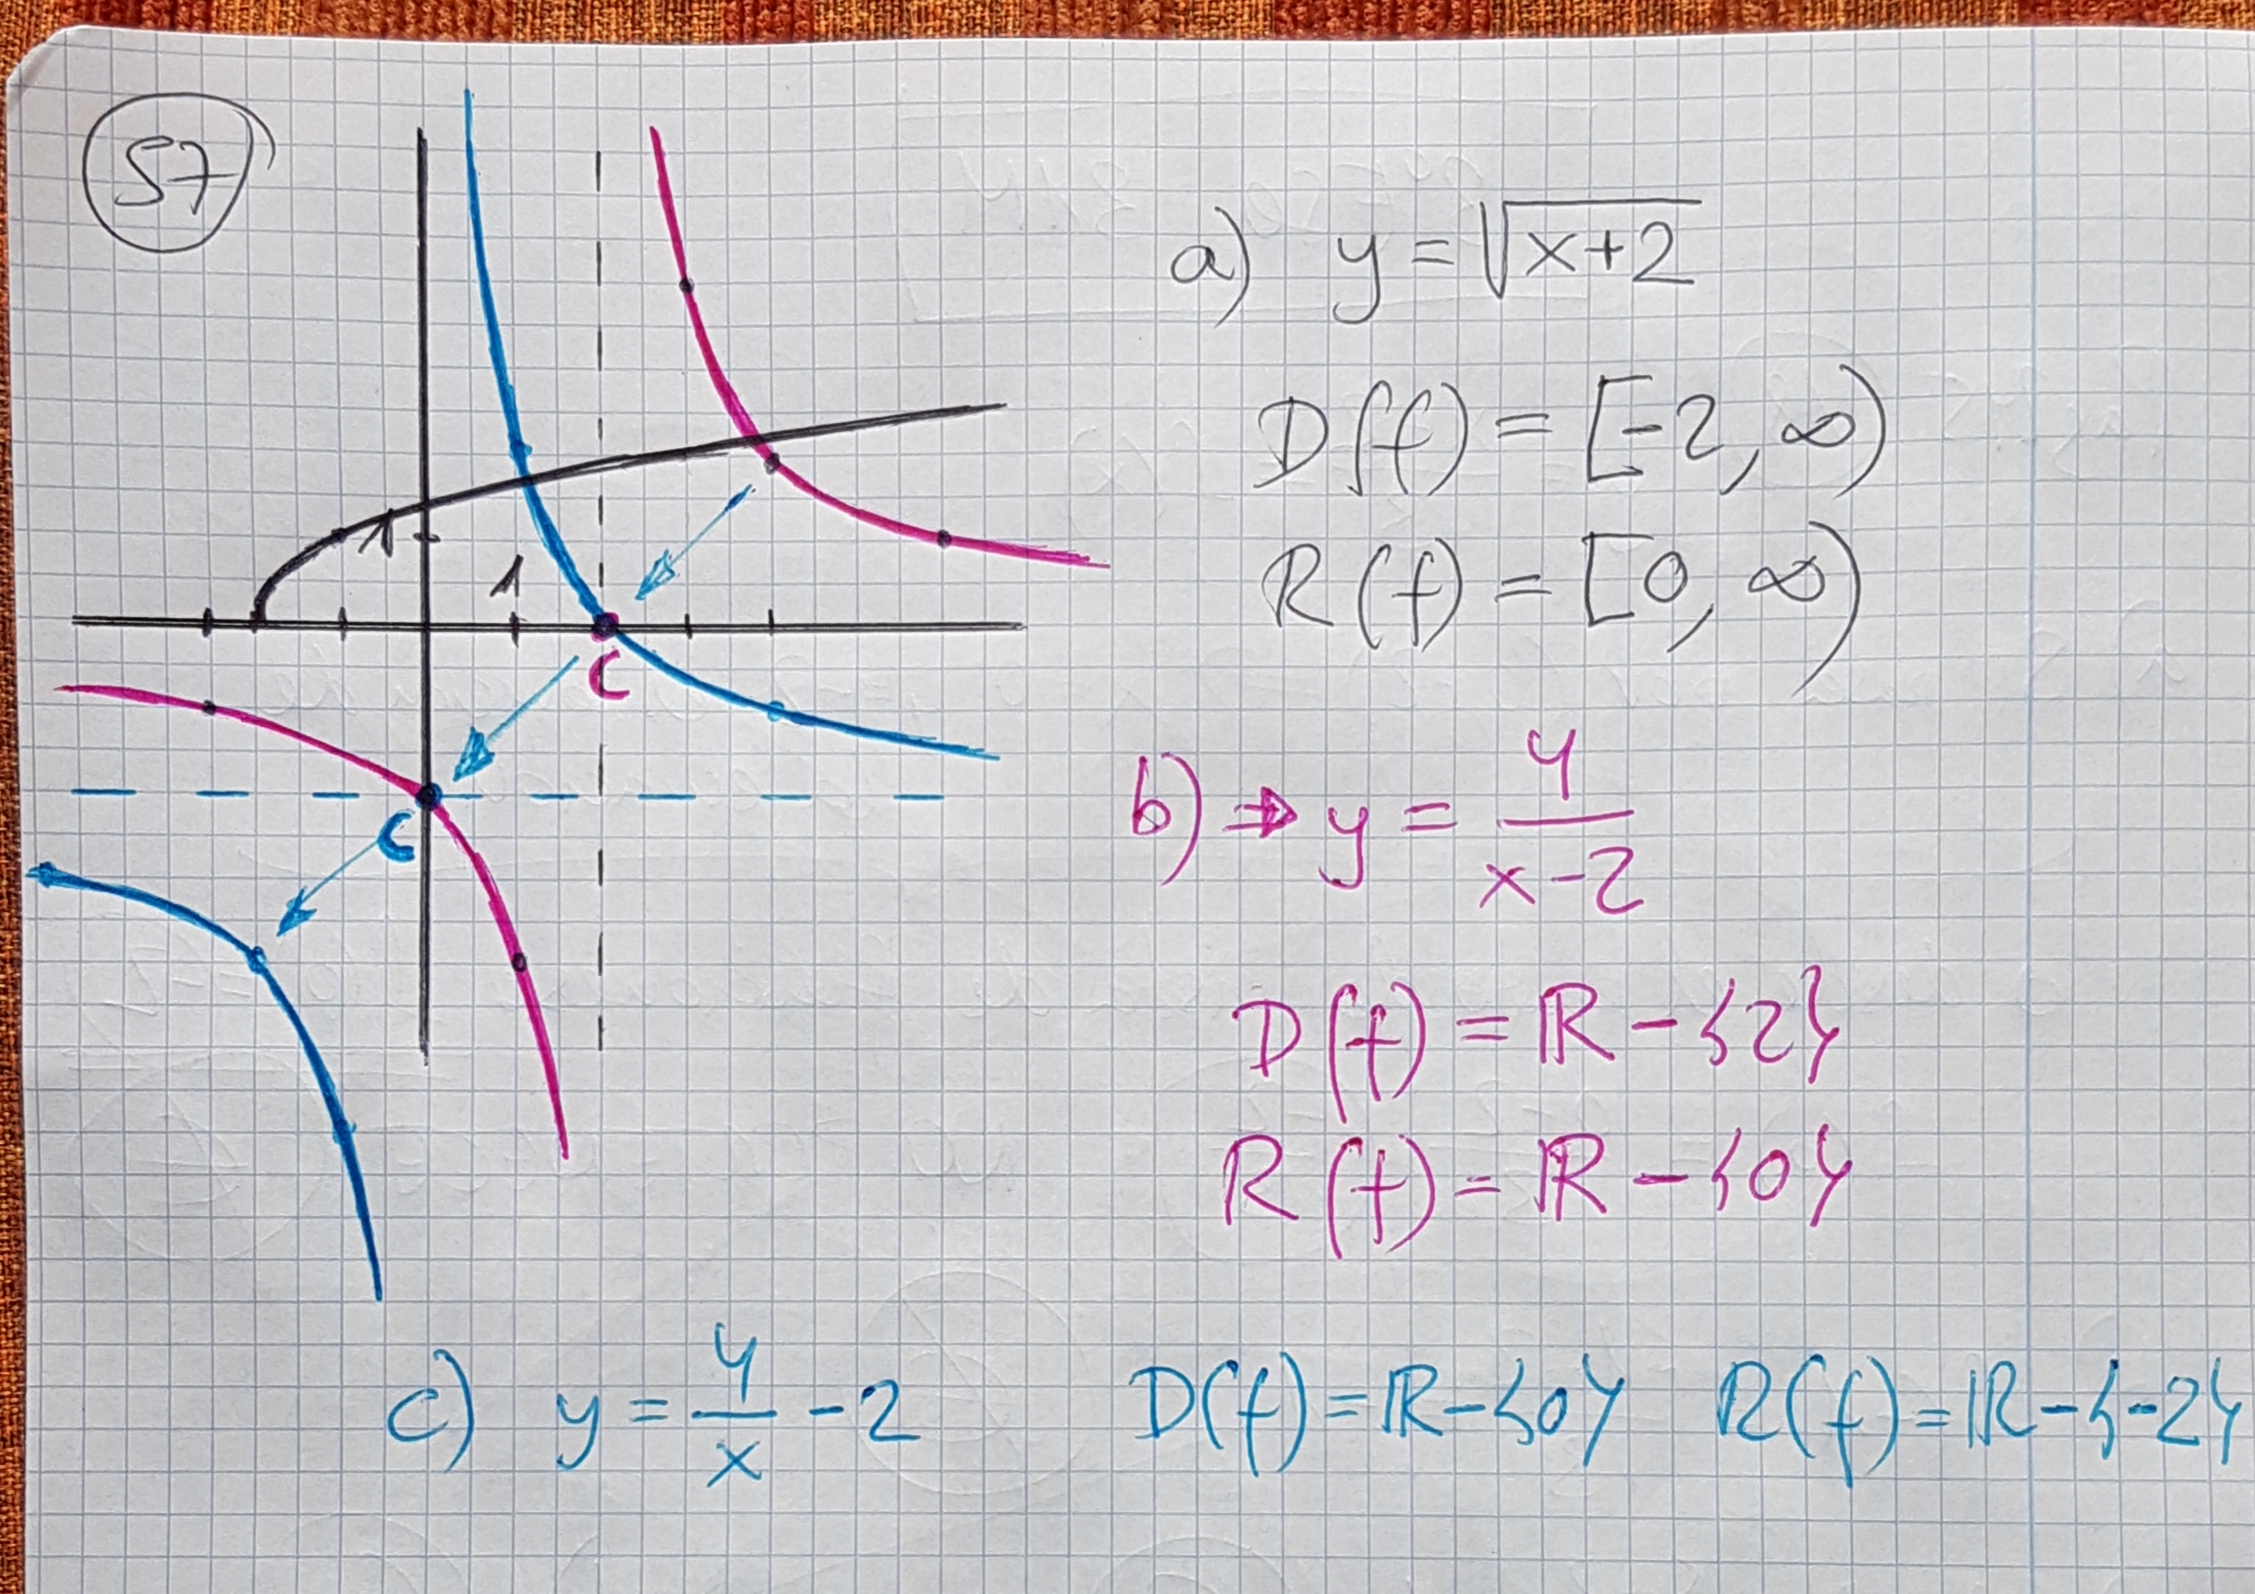 57
1
1
C
C
a) y = √x+2
D(f) = [-2, ∞)
R(f) = [0, ∞)
b) ⇒ y = 4/(x-2)
D(f) = ℝ - {2}
R(f) = ℝ - {0}
c) y = 4/x - 2 D(f) = ℝ - {0} R(f) = ℝ - {-2}